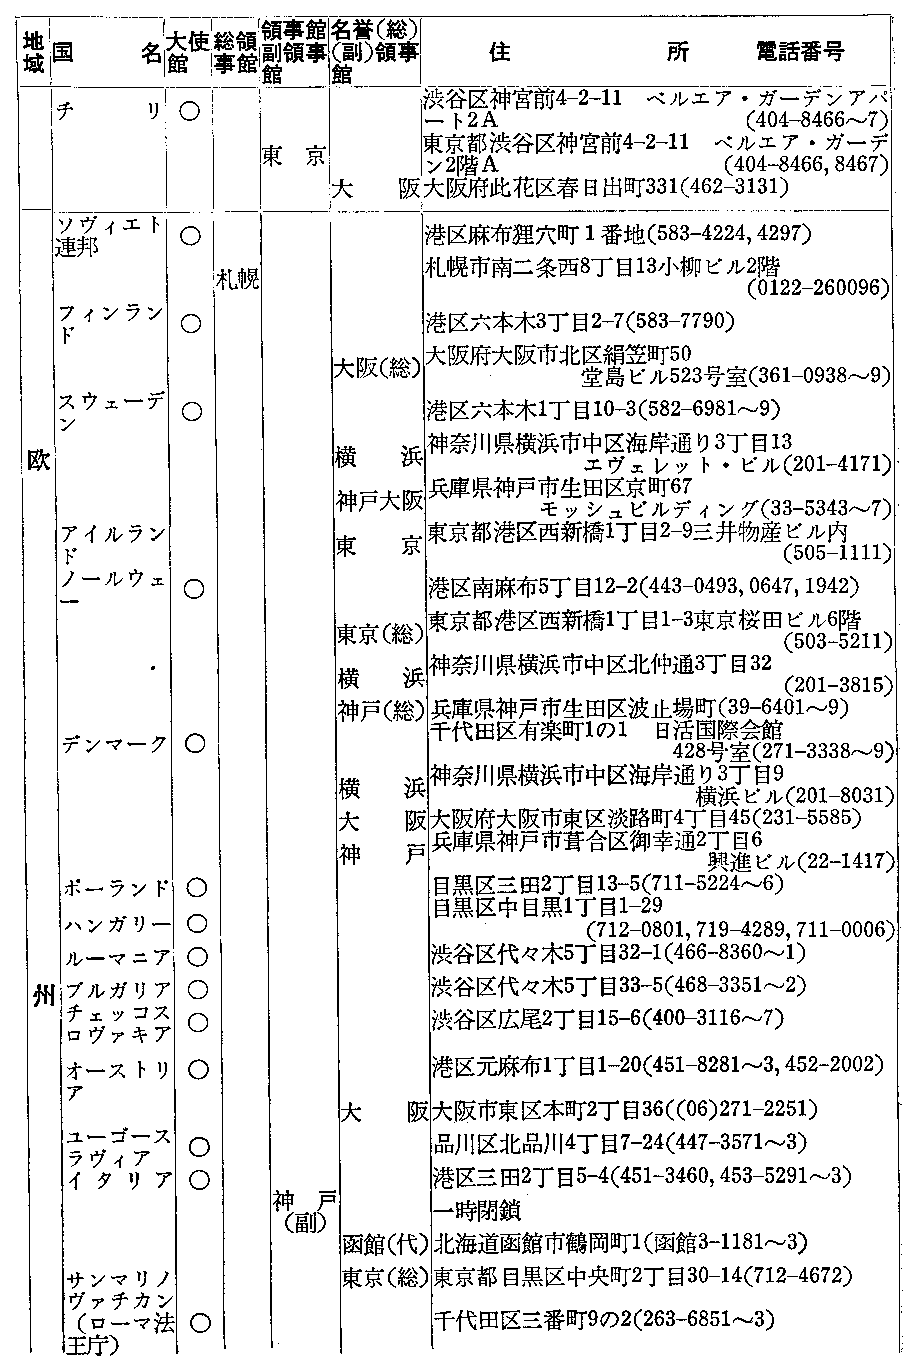 地域 国名 大使館 総領事館 領事館副領事館 名誉(総)(副)領事館 住所 電話番号
チリ ○ 渋谷区神宮前4-2-11 ベルエア・ガーデンアパ
ート2A (404-8466〜7)
東京 東京都渋谷区神宮前4-2-11 ベルエア・ガーデ
ン2階A (404-8466, 8467)
大阪 大阪府此花区春日出町331(462-3131)
欧州
ソヴィエト
連邦 ○ 港区麻布狸穴町1番地(583-4224, 4297)
札幌 札幌市南二条西8丁目13小柳ビル2階
(0122-260096)
フィンラン
ド ○ 港区六本木3丁目2-7(583-7790)
大阪(総) 大阪府大阪市北区絹笠町50
堂島ビル523号室(361-0938〜9)
スウェーデ
ン ○ 港区六本木1丁目10-3(582-6981〜9)
横浜 神奈川県横浜市中区海岸通り3丁目13
エヴェレット・ビル(201-4171)
神戸大阪 兵庫県神戸市生田区京町67
モッシュビルディング(33-5343〜7)
アイルラン
ド 東京 東京都港区西新橋1丁目2-9三井物産ビル内
(505-1111)
ノールウェ
ー ○ 港区南麻布5丁目12-2(443-0493, 0647, 1942)
東京(総) 東京都港区西新橋1丁目1-3東京桜田ビル6階
(503-5211)
横浜 神奈川県横浜市中区北仲通3丁目32
(201-3815)
神戸(総) 兵庫県神戸市生田区波止場町(39-6401〜9)
デンマーク ○ 千代田区有楽町1の1 日活国際会館
428号室(271-3338〜9)
横浜 神奈川県横浜市中区海岸通り3丁目9
横浜ビル(201-8031)
大阪 大阪府大阪市東区淡路町4丁目45(231-5585)
神戸 兵庫県神戸市葺合区御幸通2丁目6
興進ビル(22-1417)
ポーランド ○ 目黒区三田2丁目13-5(711-5224〜6)
ハンガリー ○ 目黒区中目黒1丁目1-29
(712-0801, 719-4289, 711-0006)
ルーマニア ○ 渋谷区代々木5丁目32-1(466-8360〜1)
ブルガリア ○ 渋谷区代々木5丁目33-5(468-3351〜2)
チェッコス
ロヴァキア ○ 渋谷区広尾2丁目15-6(400-3116〜7)
オーストリ
ア ○ 港区元麻布1丁目1-20(451-8281〜3, 452-2002)
大阪 大阪市東区本町2丁目36((06)271-2251)
ユーゴース
ラヴィア ○ 品川区北品川4丁目7-24(447-3571〜3)
イタリア ○ 港区三田2丁目5-4(451-3460, 453-5291〜3)
神戸
(副) 一時閉鎖
函館(代) 北海道函館市鶴岡町1(函館3-1181〜3)
サンマリノ 東京(総) 東京都目黒区中央町2丁目30-14(712-4672)
ヴァチカン
(ローマ法 ○ 千代田区三番町9の2(263-6851〜3)
王庁)